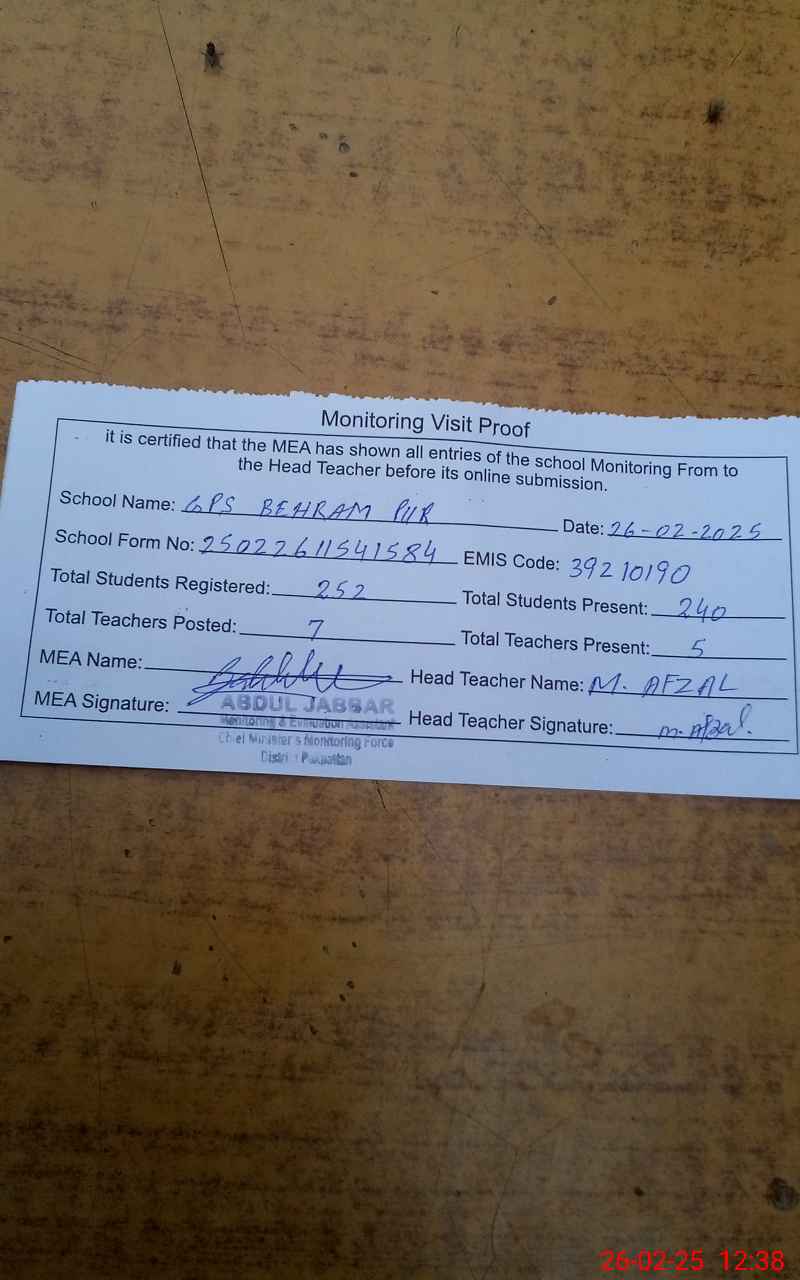 Monitoring Visit Proof
it is certified that the MEA has shown all entries of the school Monitoring From to
the Head Teacher before its online submission.
School Name: GPS BEHRAM PUR Date: 26-02-2025
School Form No: 25022611541584 EMIS Code: 39210190
Total Students Registered: 252 Total Students Present: 240
Total Teachers Posted: 7 Total Teachers Present: 5
MEA Name: Head Teacher Name: M. AFZAL
MEA Signature: Head Teacher Signature: M. Afzal.
ABDUL JABBAR
Monitoring & Evaluation Assistant
Chief Minister's Monitoring Force
District Pakpattan
26-02-25 12:38